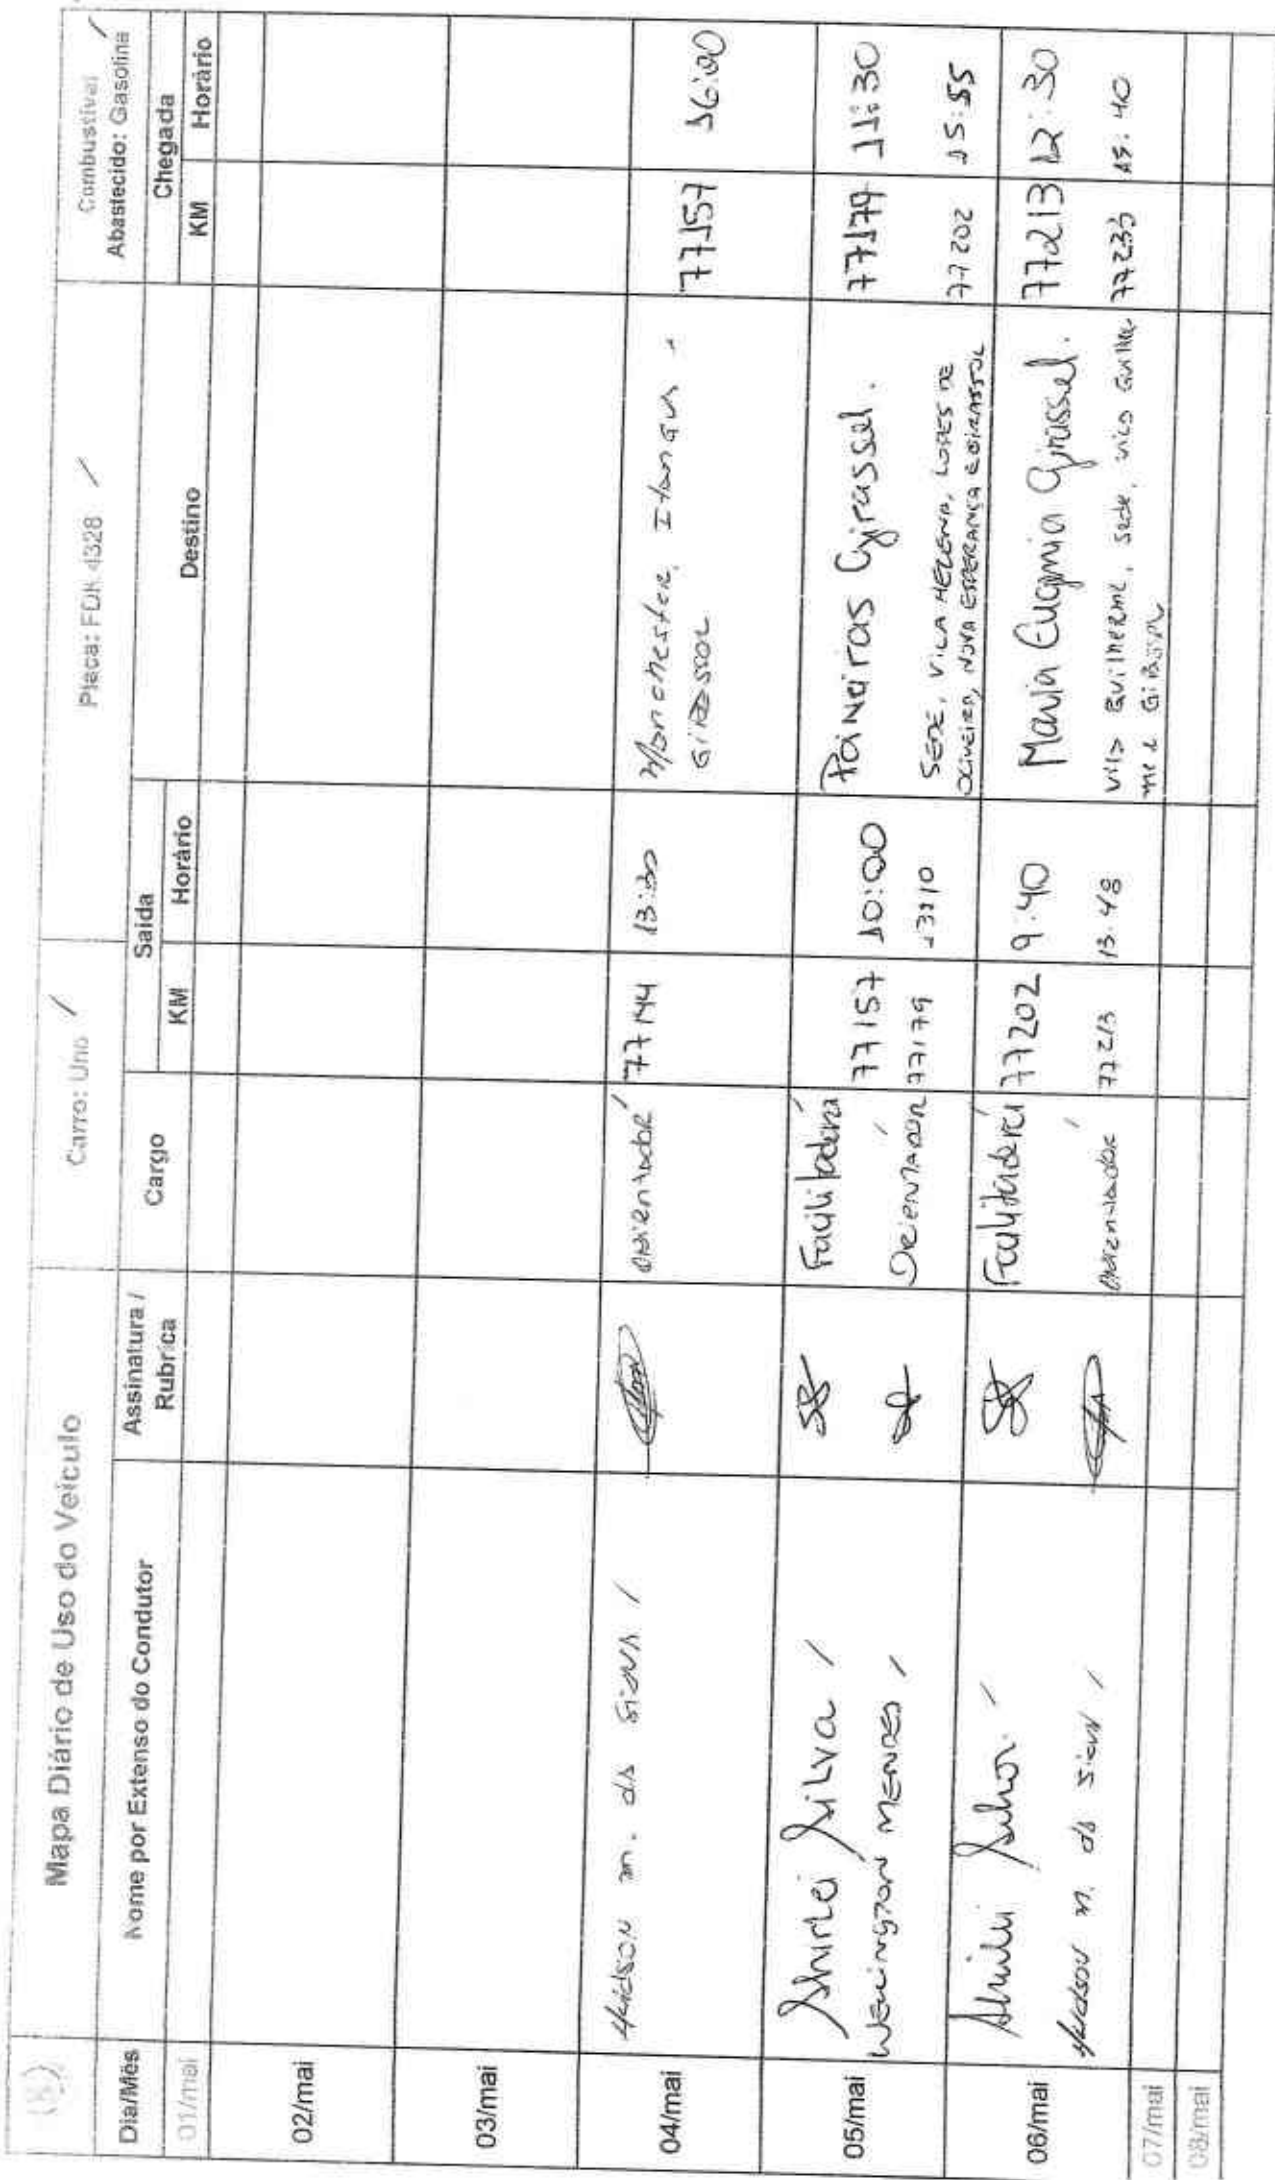 Mapa Diário de Uso do Veículo Carro: Uno Placa: FDK 4328 Combustível
Abastecido: Gasolina
Dia/Mês Nome por Extenso do Condutor Assinatura / Rubrica Cargo Saida Destino Chegada
KM Horário KM Horário
01/mai
02/mai
03/mai
04/mai m. da 77144 13:30 Manchester, Itangua 77157 16:00
Girassol
05/mai Shirlei Silva Facilitadora 77157 10:00 Paineiras Girassol. 77179 11:30
Wellington MENDES Orientador 77179 13:10 SEDE, VILA HELENA, LOPES DE 77202 15:55
OLIVEIRA, NOVA ESPERANÇA E GIRASSOL
06/mai Shirlei Silva Facilitadora 77202 9:40 Maria Eugenia Girassol. 77213 12:30
m. da Orientador 77213 13:48 Vila Guilherme, Sede, Vila Guilher 77233 15:40
me e Girassol
07/mai
08/mai